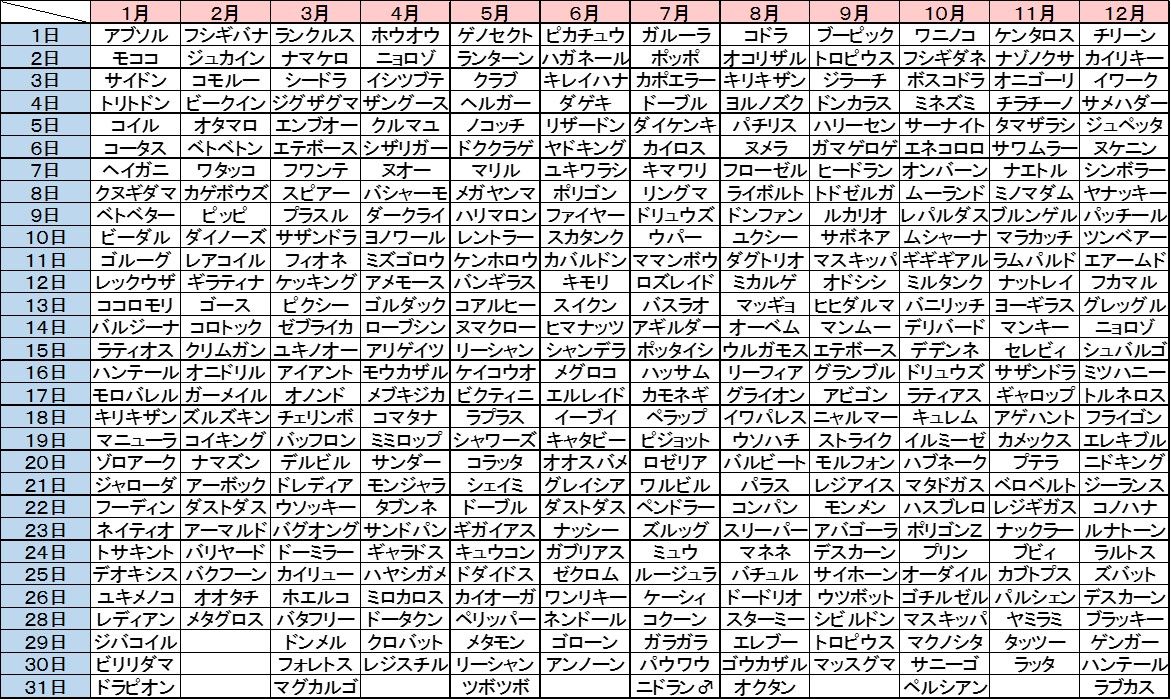 1月 2月 3月 4月 5月 6月 7月 8月 9月 10月 11月 12月
1日 アブソル フシギバナ ランクルス ホウオウ ゲノセクト ピカチュウ ガルーラ コドラ ブーピック ワニノコ ケンタロス チリーン
2日 モココ ジュカイン ナマケロ ニョロゾ ランターン ハガネール ポッポ オコリザル トロピウス フシギダネ ナゾノクサ カイリキー
3日 サイドン コモルー シードラ イシツブテ クラブ キレイハナ カポエラー キリキザン ジラーチ ボスコドラ オニゴーリ イワーク
4日 トリトドン ビークイン ジグザグマ ザングース ヘルガー ダゲキ ドーブル ヨルノズク ドンカラス ミネズミ チラチーノ サメハダー
5日 コイル オタマロ エンブオー クルマユ ノコッチ リザードン ダイケンキ パチリス ハリーセン サーナイト タマザラシ ジュペッタ
6日 コータス ベトベトン エテボース シザリガー ドククラゲ ヤドキング カイロス ヌメラ ガマゲロゲ エネコロロ サワムラー ヌケニン
7日 ヘイガニ ワタッコ フワンテ ヌオー マリル ユキワラシ キマワリ フローゼル ヒードラン オンバーン ナエトル シンボラー
8日 クヌギダマ カゲボウズ スピアー バシャーモ メガヤンマ ポリゴン リングマ ライボルト トドゼルガ ムーランド ミノマダム ヤナッキー
9日 ベトベター ピッピ プラスル ダークライ ハリマロン ファイヤー ドリュウズ ドンファン ルカリオ レパルダス ブルンゲル パッチール
10日 ビーダル ダイノーズ サザンドラ ヨノワール レントラー スカタンク ウパー ユクシー サボネア ムシャーナ マラカッチ ツンベアー
11日 ゴルーグ レアコイル フィオネ ミズゴロウ ケンホロウ カバルドン ママンボウ ダグトリオ マスキッパ ギギギアル ラムパルド エアームド
12日 レックウザ ギラティナ ケッキング アメモース バンギラス キモリ ロズレイド ミカルゲ オドシシ ミルタンク ナットレイ フカマル
13日 ココロモリ ゴース ピクシー ゴルダック コアルヒー スイクン バスラオ マッギョ ヒヒダルマ バニリッチ ヨーギラス グレッグル
14日 バルジーナ コロトック ゼブライカ ローブシン ヌマクロー ヒマナッツ アギルダー オーベム マンムー デリバード マンキー ニョロゾ
15日 ラティオス クリムガン ユキノオー アリゲイツ リーシャン シャンデラ ポッタイシ ウルガモス エテボース デデンネ セレビィ シュバルゴ
16日 ハンテール オニドリル アイアント モウカザル ケイコウオ メグロコ ハッサム リーフィア グランブル ドリュウズ サザンドラ ミツハニー
17日 モロバレル ガーメイル オノンド メブキジカ ビクティニ エルレイド カモネギ グライオン アビゴン ラティアス ギャロップ トルネロス
18日 キリキザン ズルズキン チェリンボ コマタナ ラプラス イーブイ ペラップ イワパレス ニャルマー キュレム アゲハント フライゴン
19日 マニューラ コイキング バッフロン ミミロップ シャワーズ キャタピー ピジョット ウソハチ ストライク イルミーゼ カメックス エレキブル
20日 ゾロアーク ナマズン デルビル サンダー コラッタ オオスバメ ロゼリア バルビート モルフォン ハブネーク プテラ ニドキング
21日 ジャローダ アーボック ドレディア モンジャラ シェイミ グレイシア ワルビル パラス レジアイス マタドガス ベロベルト ジーランス
22日 フーディン ダストダス ウソッキー タブンネ ドーブル ダストダス ペンドラー コンパン モンメン ハスブレロ レジギガス コノハナ
23日 ネイティオ アーマルド バグオング サンドパン ギガイアス ナッシー ズルッグ スリーパー アバゴーラ ポリゴンZ ナックラー ルナトーン
24日 トサキント バリヤード ドーミラー ギャラドス キュウコン ガブリアス ミュウ マネネ デスカーン プリン ブビィ ラルトス
25日 デオキシス バクフーン カイリュー ハヤシガメ ドダイドス ゼクロム ルージュラ バチュル サイホーン オーダイル カブトプス ズバット
26日 ユキメノコ オオタチ ホエルコ ミロカロス カイオーガ ワンリキー ケーシィ ドードリオ ウツボット ゴチルゼル パルシェン デスカーン
28日 レディアン メタグロス バタフリー ドータクン ペリッパー ネンドール コクーン スターミー シビルドン マスキッパ ヤミラミ ブラッキー
29日 ジバコイル ドンメル クロバット メタモン ゴローン ガラガラ エレブー トロピウス マクノシタ タッツー ゲンガー
30日 ビリリダマ フォレトス レジスチル リーシャン アンノーン パウワウ ゴウカザル マッスグマ サニーゴ ラッタ ハンテール
31日 ドラピオン マグカルゴ ツボツボ ニドラン♂ オクタン ペルシアン ラブカス